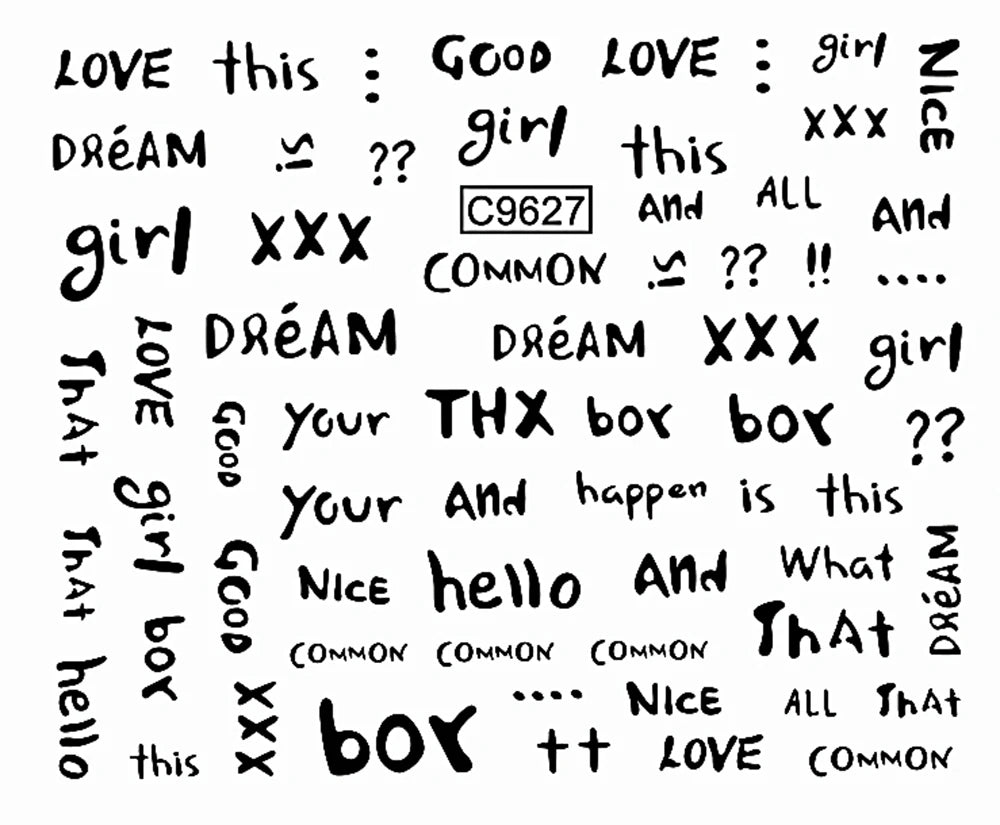 LOVE this ... GOOD LOVE ... girl NICE
DRéAM is ?? girl this xxx
girl XXX C9627 ANd ALL ANd
COMMON is ?? !! ....
LOVE DRéAM DRéAM XXX girl
ThAt GOOD your THX boy boy ??
girl your ANd happen is this
ThAt GOOD NICE hello ANd What DRéAM
boy COMMON COMMON COMMON ThAt
hello XXX boy .... NICE ALL ThAt
this †† LOVE COMMON